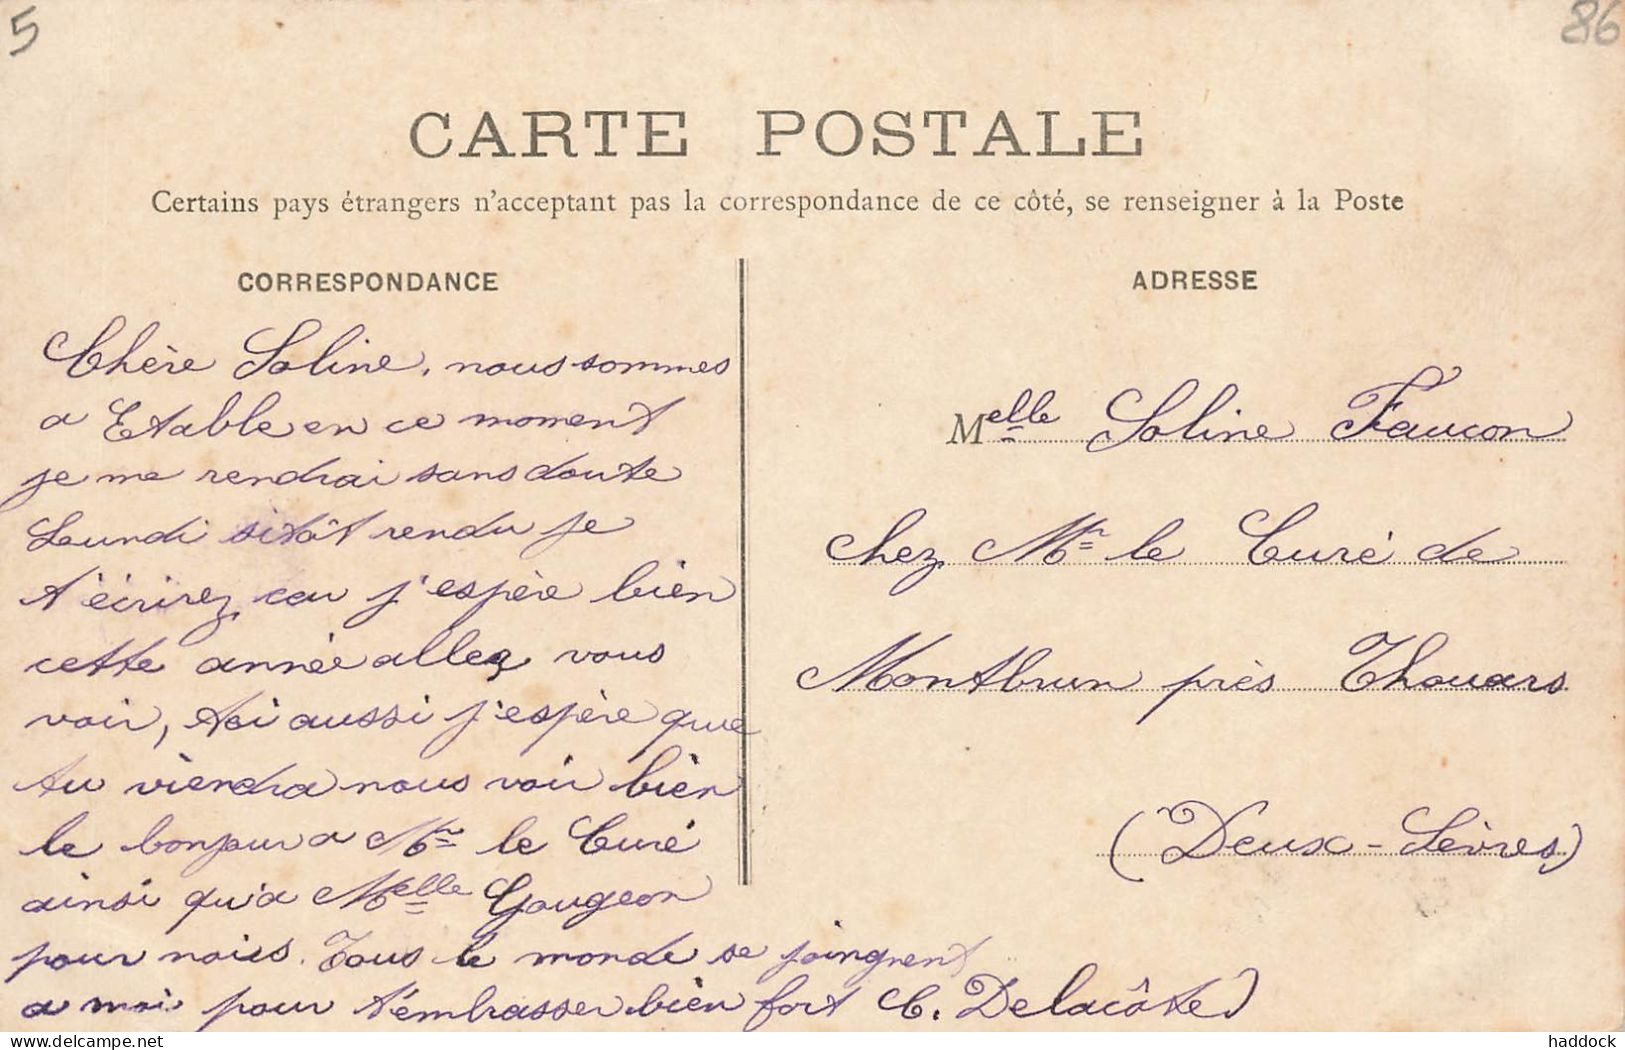 5
86
CARTE POSTALE
Certains pays étrangers n'acceptent pas la correspondance de ce côté, se renseigner à la Poste
CORRESPONDANCE
Chère Soline, nous sommes
a Etable en ce moment
je me rendrai sans doute
Lundi sitôt rendu je
t'écrirez car j'espère bien
cette année allez vous
voir, toi aussi j'espère que
tu viendra nous voir bien
le bonjour a Mr le Curé
ainsi qu'a Melle Gougeon
pour nous. Tous le monde se joingnent
a moi pour t'embrasser bien fort C. Delacôte
ADRESSE
Melle Soline Faucon
chez Mr le Curé de
Montbrun près Thouars
(Deux-Sèvres)
delcampe.net
haddock